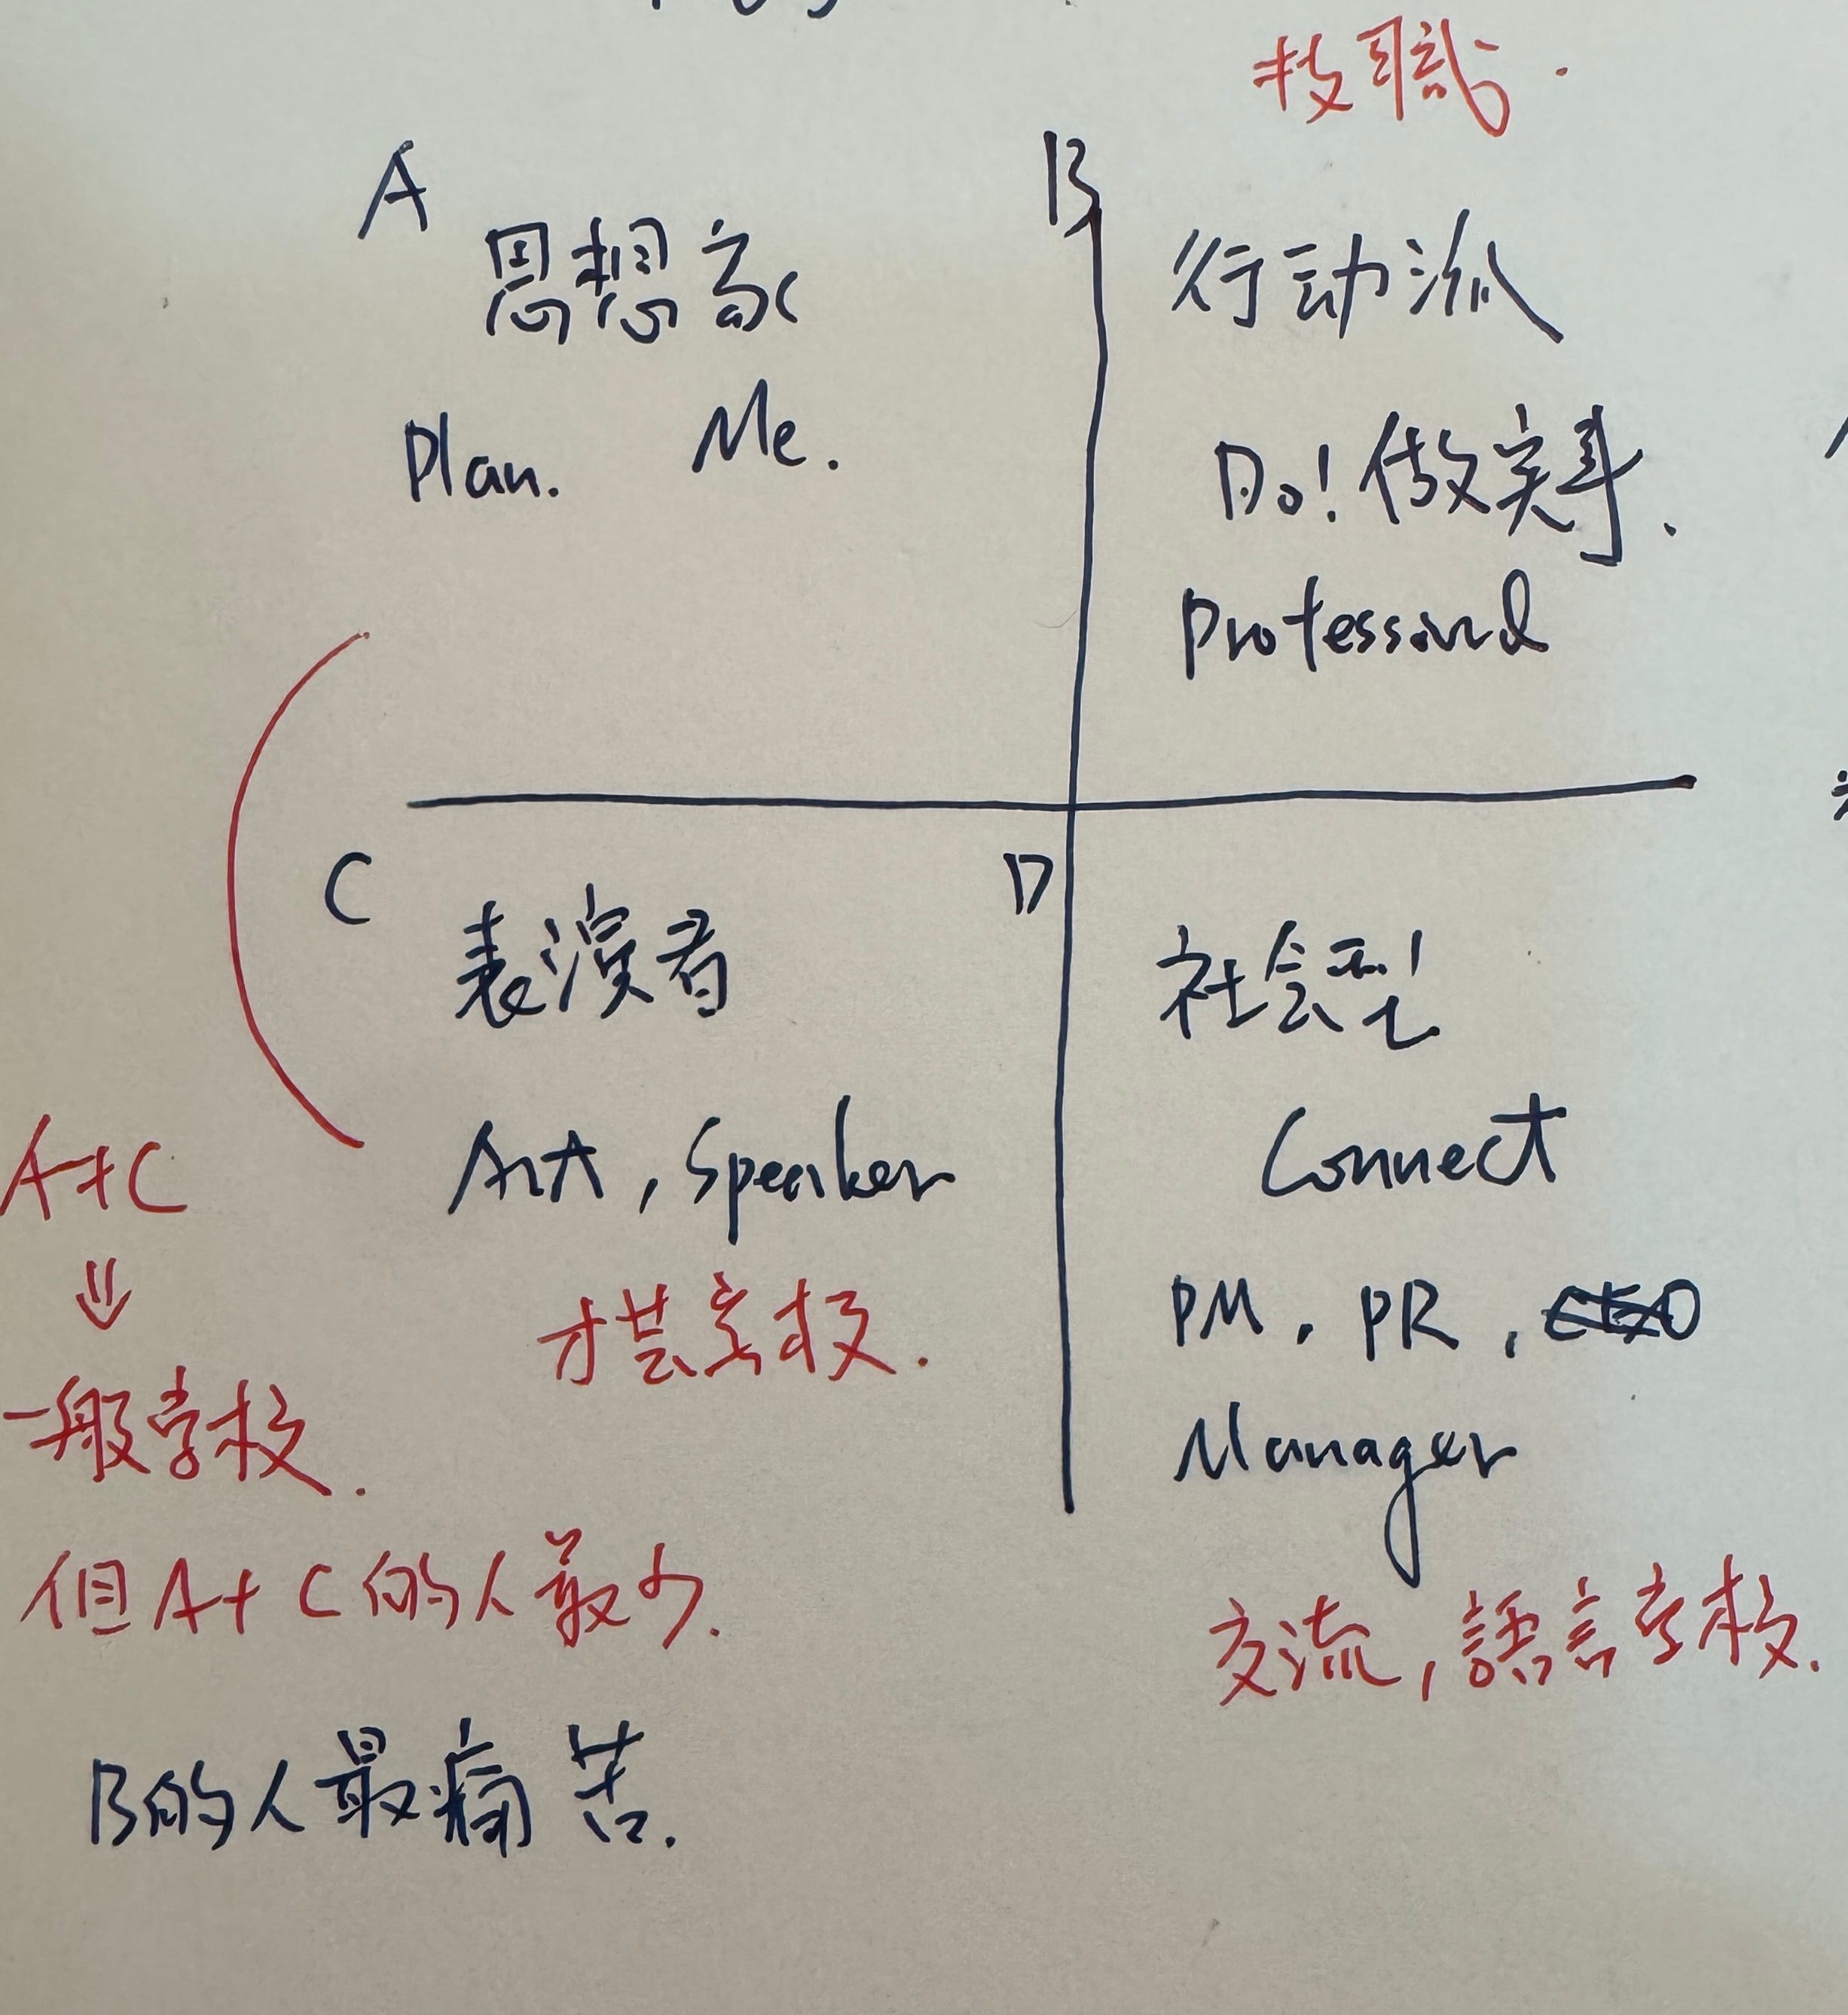 技職.
A
思想家
Plan. Me.
B
行动派
Do! 做实事.
Professional
C
表演者
Art, Speaker
才芸学校.
D
社会型
Connect
PM, PR,
Manager
交流, 語言学校.
A+C
⇓
一般学校.
但A+C的人最少.
B的人最痛苦.